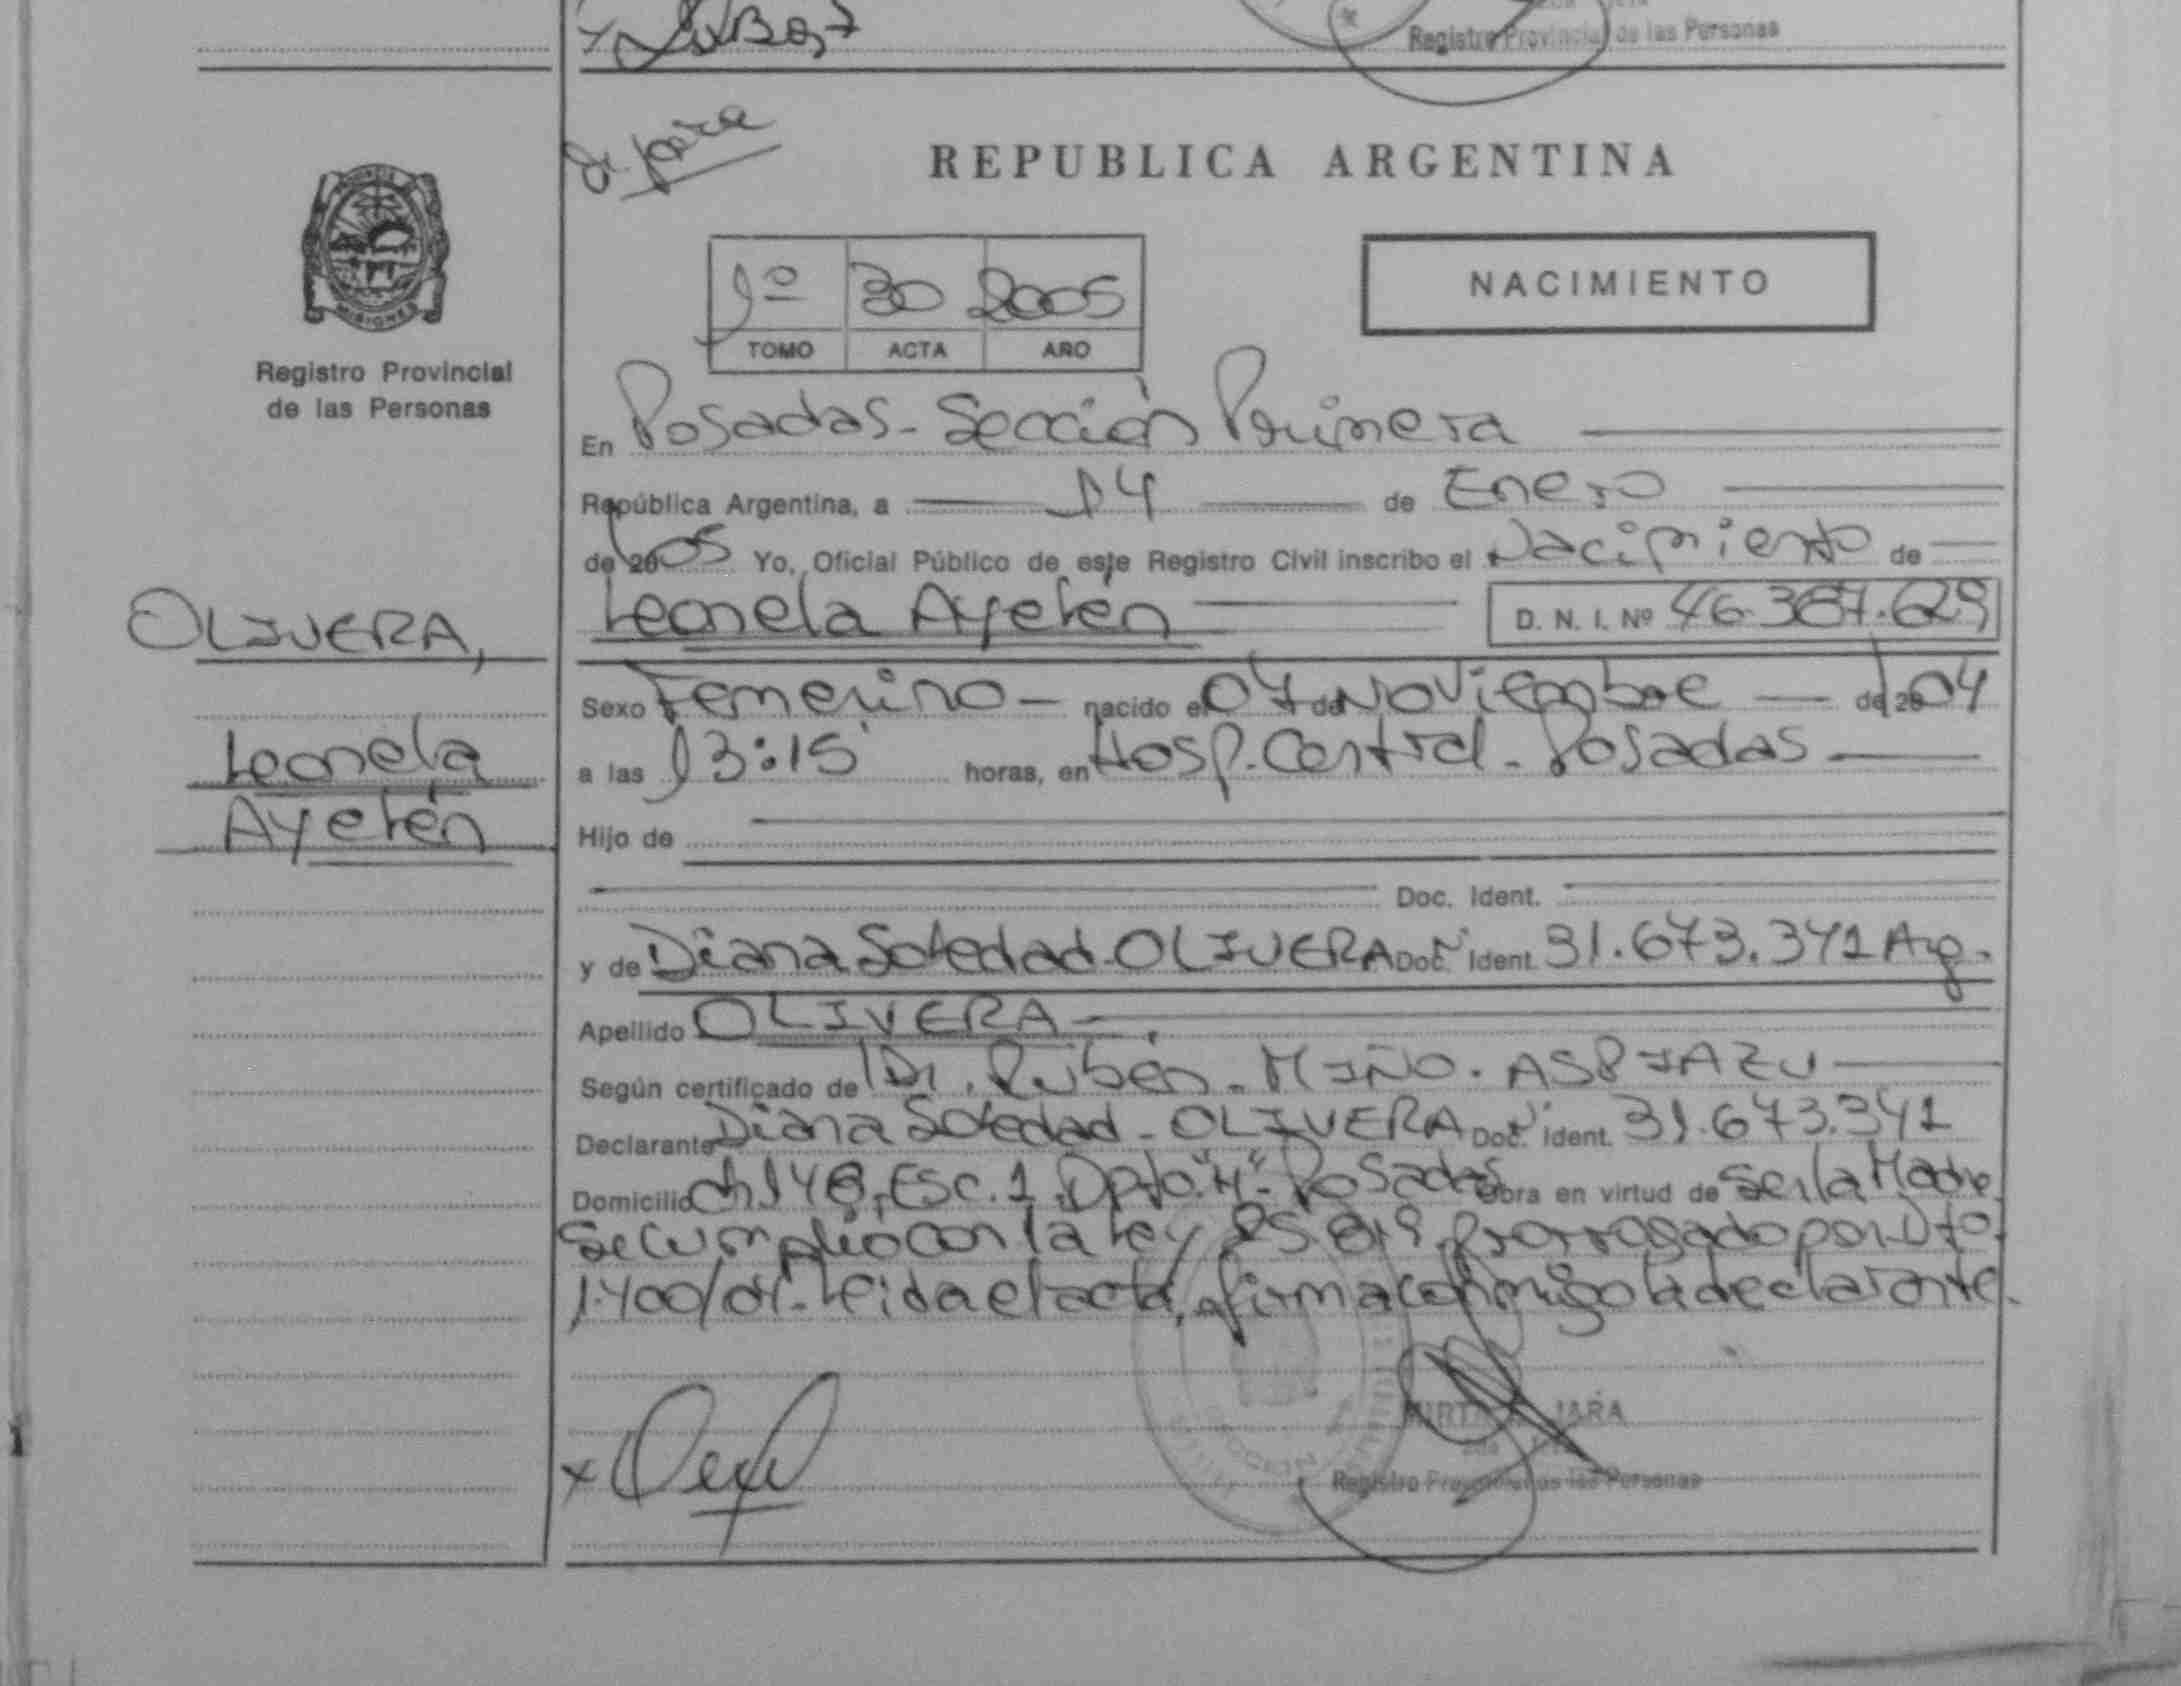 Registro Provincial de las Personas
REPUBLICA ARGENTINA
1º 30 2005
TOMO ACTA AÑO
NACIMIENTO
MISIONES
Registro Provincial
de las Personas
En Posadas - Sección Primera
República Argentina, a 14 de Enero
de 2005 Yo, Oficial Público de este Registro Civil inscribo el Nacimiento de
Leonela Ayelén D. N. I. Nº 46.387.629
OLIVERA,
Leonela
Ayelén
Sexo Femenino - nacido el 07 de Noviembre de 2004
a las 13:15 horas, en Hosp. Central - Posadas
Hijo de
Doc. Ident.
y de Diana Soledad - OLIVERA Doc. Nº Ident. 31.673.341 Arg.
Apellido OLIVERA -
Según certificado de Dr. Rubén - MIÑO - ASPIAZU
Declarante Diana Soledad - OLIVERA Doc. Nº Ident. 31.673.341
Domicilio ch 148, Esc. 1, Dpto. "H" - Posadas obra en virtud de ser la Madre.
Se cumplió con la Ley 25.819, prorrogado por Dto.
1.400/04. Leida el acta, firma conmigo la declarante.
JARA
Registro Provincial de las Personas